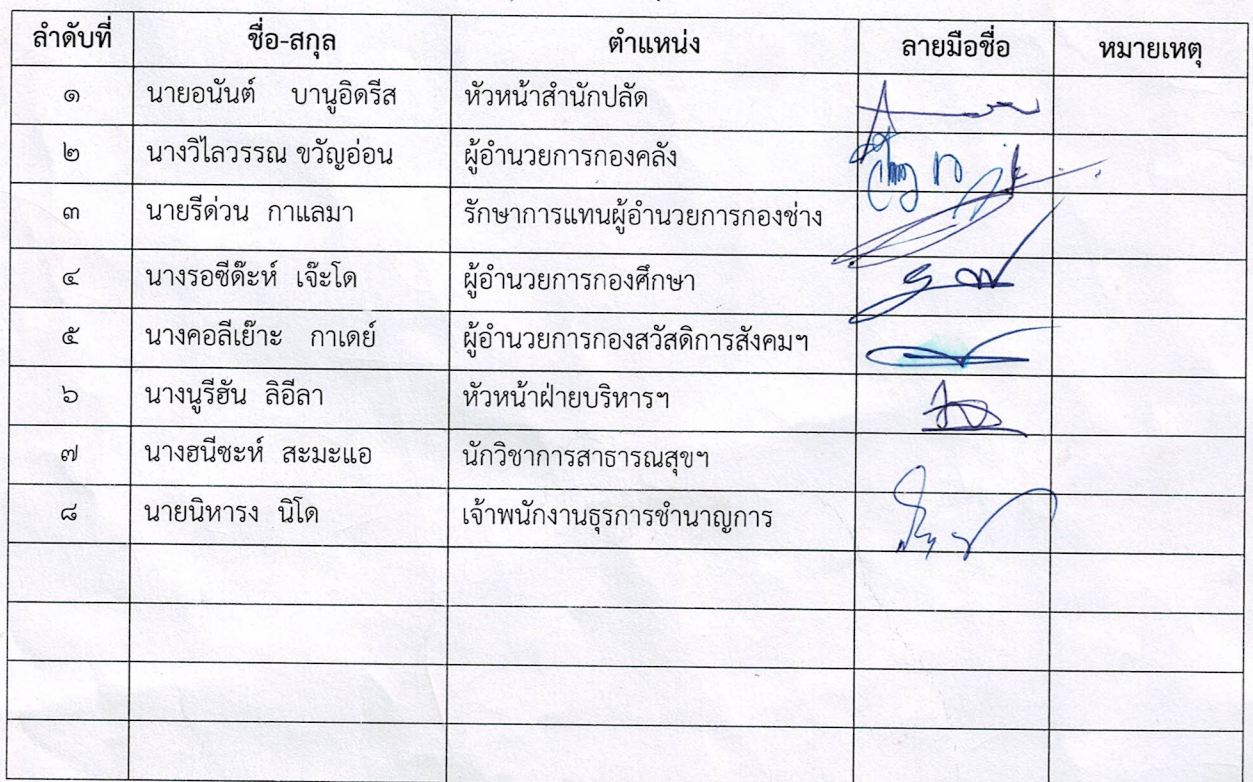 ลำดับที่ ชื่อ-สกุล ตำแหน่ง ลายมือชื่อ หมายเหตุ
๑ นายอนันต์ บานูอิดรีส หัวหน้าสำนักปลัด
๒ นางวิไลวรรณ ขวัญอ่อน ผู้อำนวยการกองคลัง
๓ นายรีด่วน กาแลมา รักษาการแทนผู้อำนวยการกองช่าง
๔ นางรอซีด๊ะห์ เจ๊ะโด ผู้อำนวยการกองศึกษา
๕ นางคอลีเย๊าะ กาเดย์ ผู้อำนวยการกองสวัสดิการสังคมฯ
๖ นางนูรีฮัน ลิอีลา หัวหน้าฝ่ายบริหารฯ
๗ นางฮนีซะห์ สะมะแอ นักวิชาการสาธารณสุขฯ
๘ นายนิหารง นิโด เจ้าพนักงานธุรการชำนาญการ